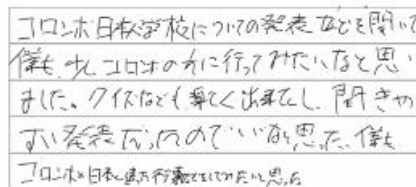 コロンボ日本人学校についての発表などを聞いて
僕も少しコロンボの方に行ってみたいなと思い
ました。クイズなども楽しく出来たし、聞きや
すい発表だったのでいいなと思った。僕も
コロンボや日本と違った行事をしてみたいと思った